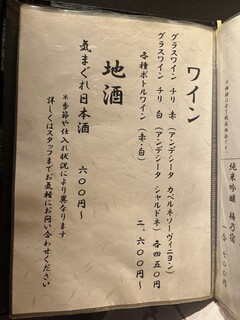 ワイン
グラスワイン チリ 赤（アンデシータ カベルネソーヴィニヨン）
グラスワイン チリ 白（アンデシータ シャルドネ）各四五〇円
各種ボトルワイン（赤・白） 二、六〇〇円〜
地酒
気まぐれ日本酒 六〇〇円〜
※季節や仕入れ状況により異なります
詳しくはスタッフまでお気軽にお問い合わせください
純米吟醸 梅乃宿
一合 七〇〇円